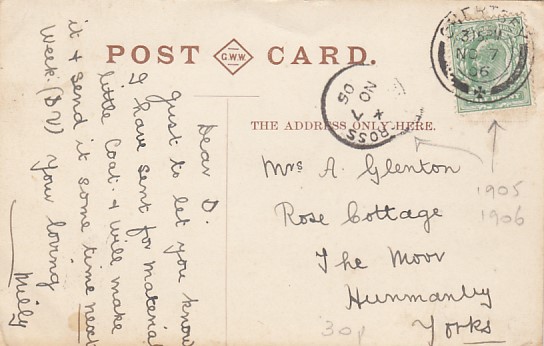 POST G.W.W. CARD.
THE ADDRESS ONLY HERE.
NO 7
06
ROSS
NO 7
05
Dear D.
Just to let you know
I have sent for material
little Coat. & will make
it & send it some time next
Week. (D V) Your loving
Milly
Mrs A. Glenton
Rose Cottage
The Moor
Hunmanby
Yorks
1905
1906
30p